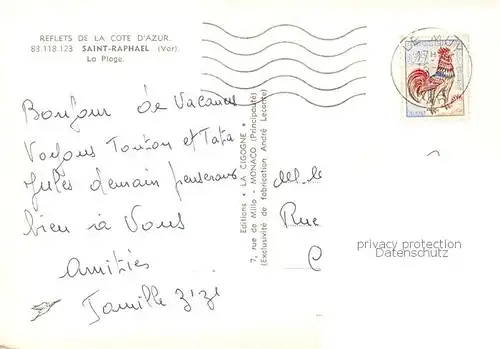 REFLETS DE LA COTE D'AZUR.
83.118.123 SAINT-RAPHAEL (Var).
La Plage.
Bonjour de Vacances
Voyons Tonton et Tata
Jules demain penserons
bien à Vous
Amitiés
Famille Zizi
Editions « LA CIGOGNE »
7, rue de Millo - MONACO (Principauté)
(Exclusivité de fabrication André Leconte)
LE MUY
Rue
privacy protection
Datenschutz